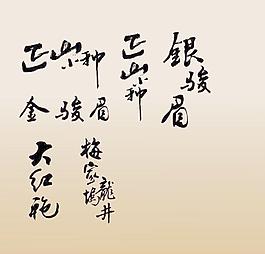 正山小种
金骏眉
正山小种
銀骏眉
大红袍
梅家塢龍井